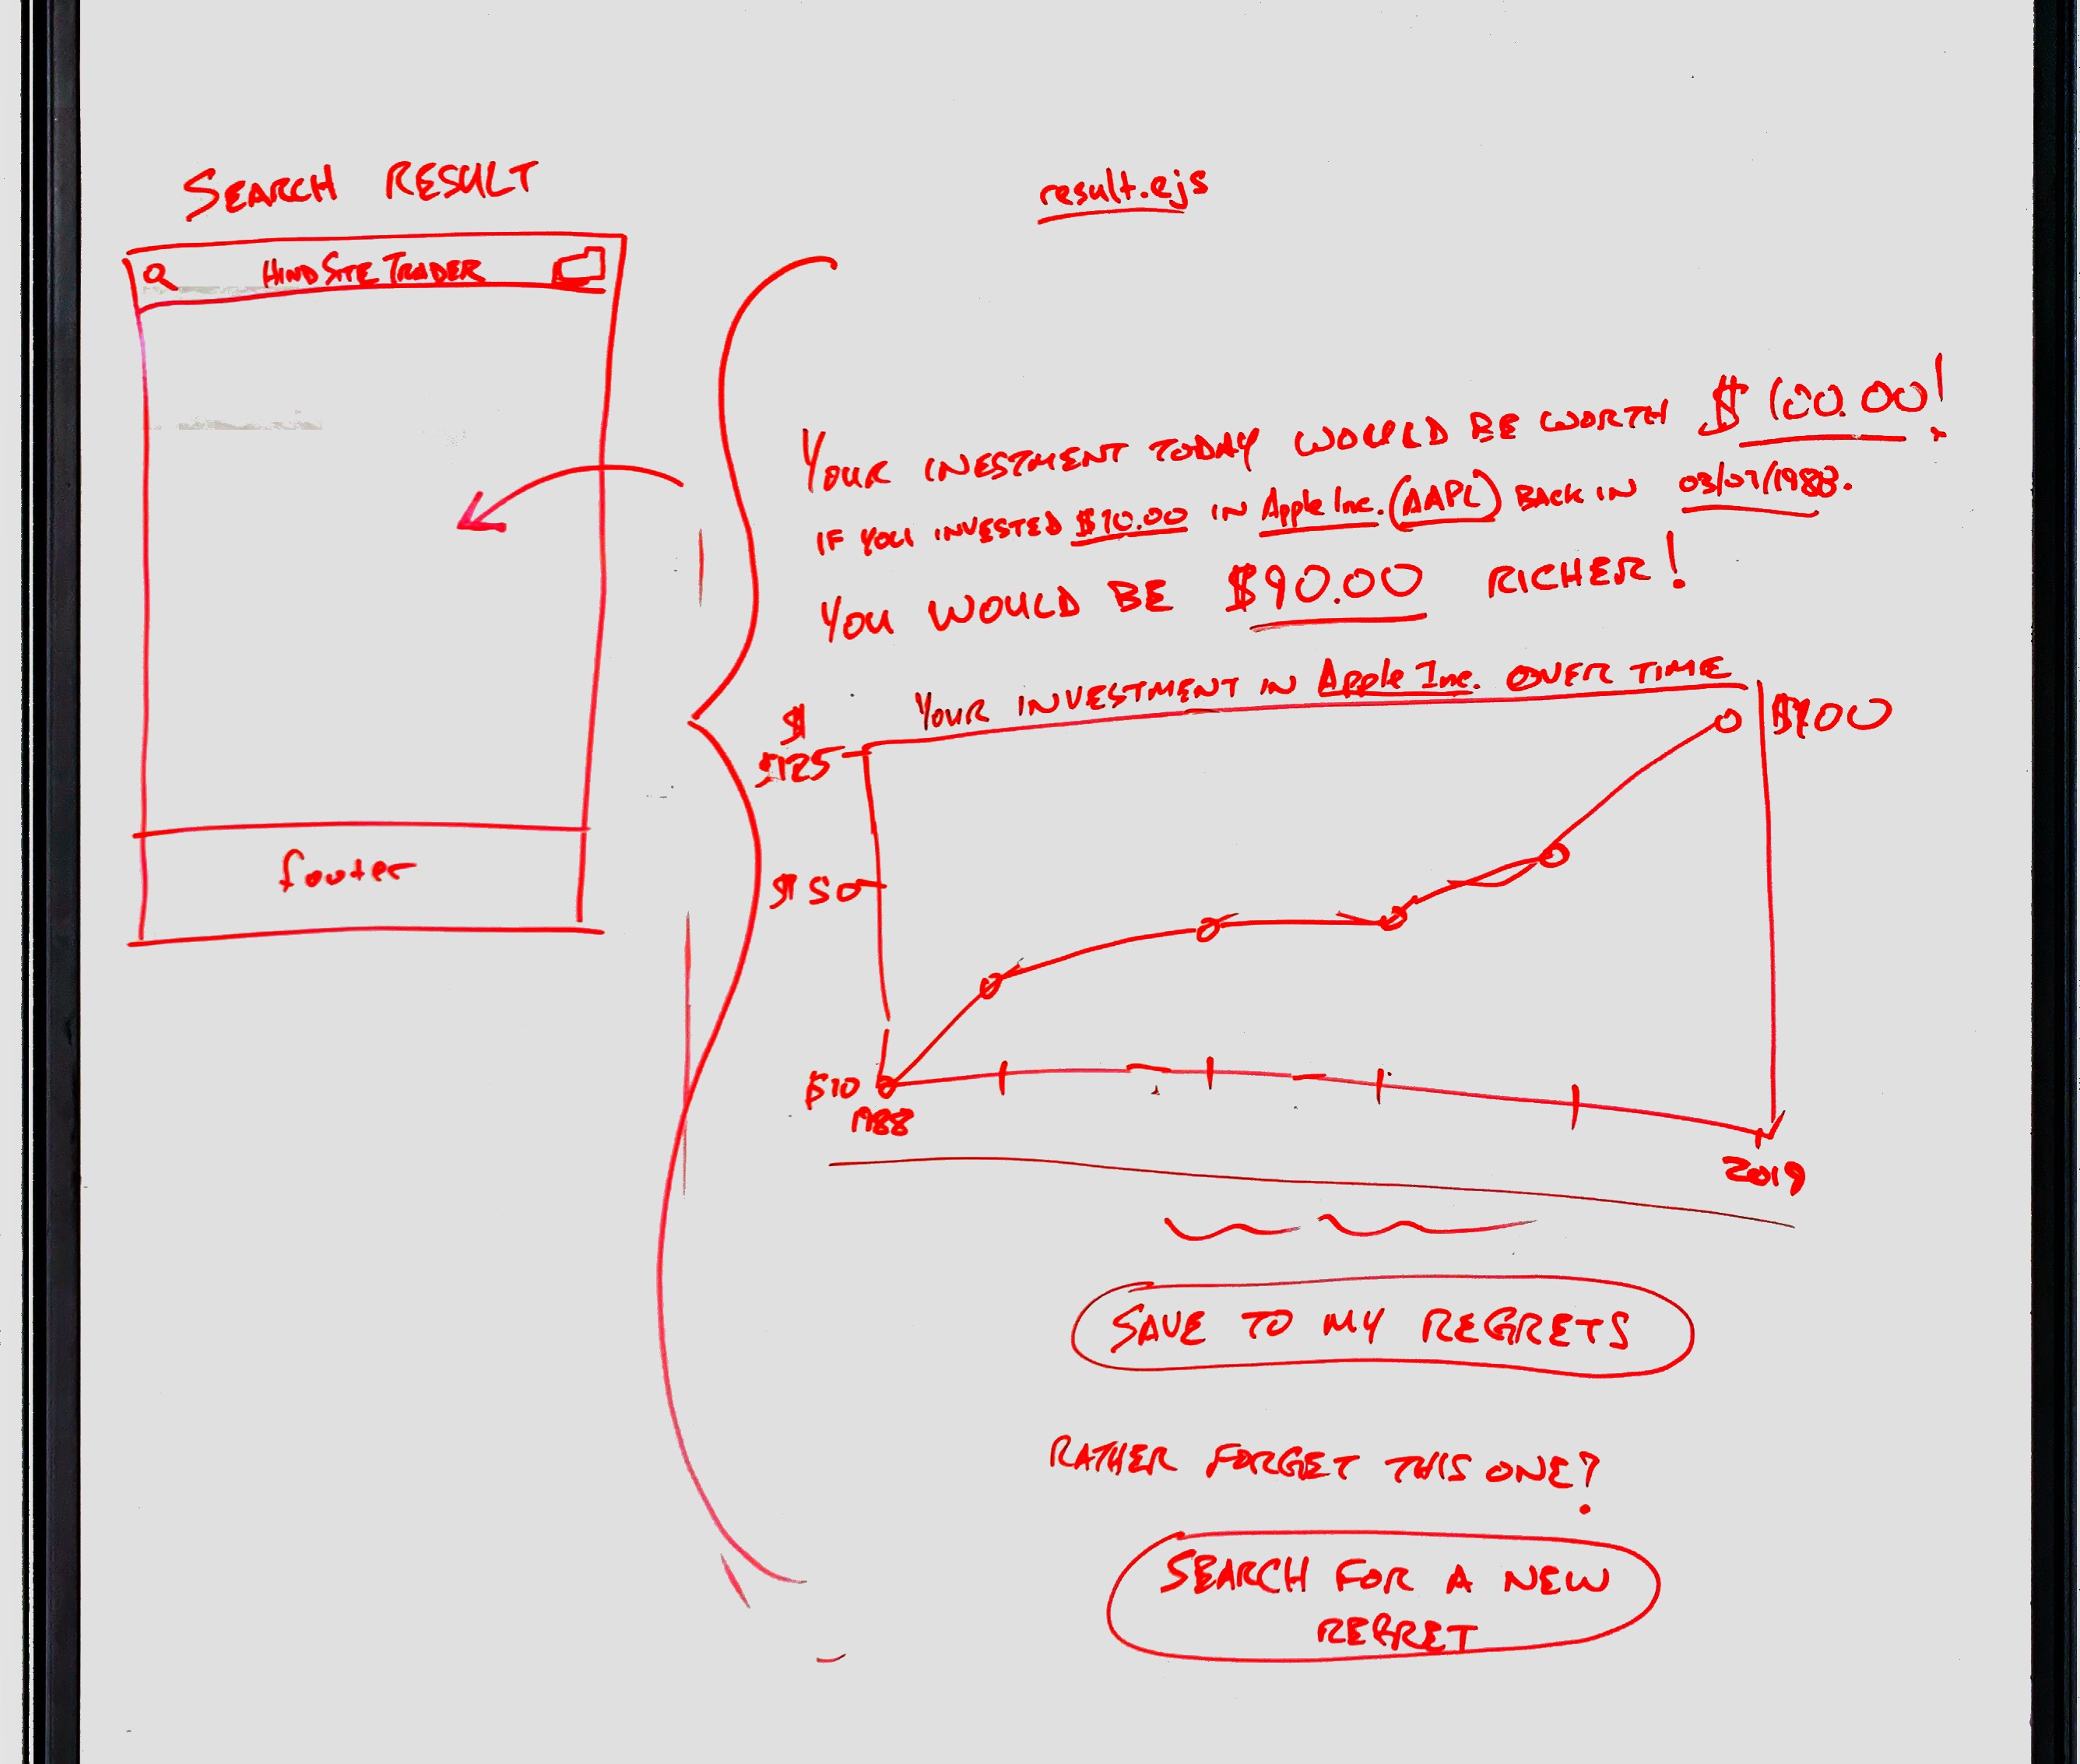 SEARCH RESULT
result.ejs
HINDSITE TRADER
footer
YOUR INESTMENT TODAY WOULD BE WORTH $100.00!
IF YOU INVESTED $10.00 IN Apple Inc. (AAPL) BACK IN 03/07/1988.
YOU WOULD BE $90.00 RICHER!
YOUR INVESTMENT IN Apple Inc. OVER TIME
$
$125
$100
$50
$10
1988
2019
SAVE TO MY REGRETS
RATHER FORGET THIS ONE?
SEARCH FOR A NEW
REGRET